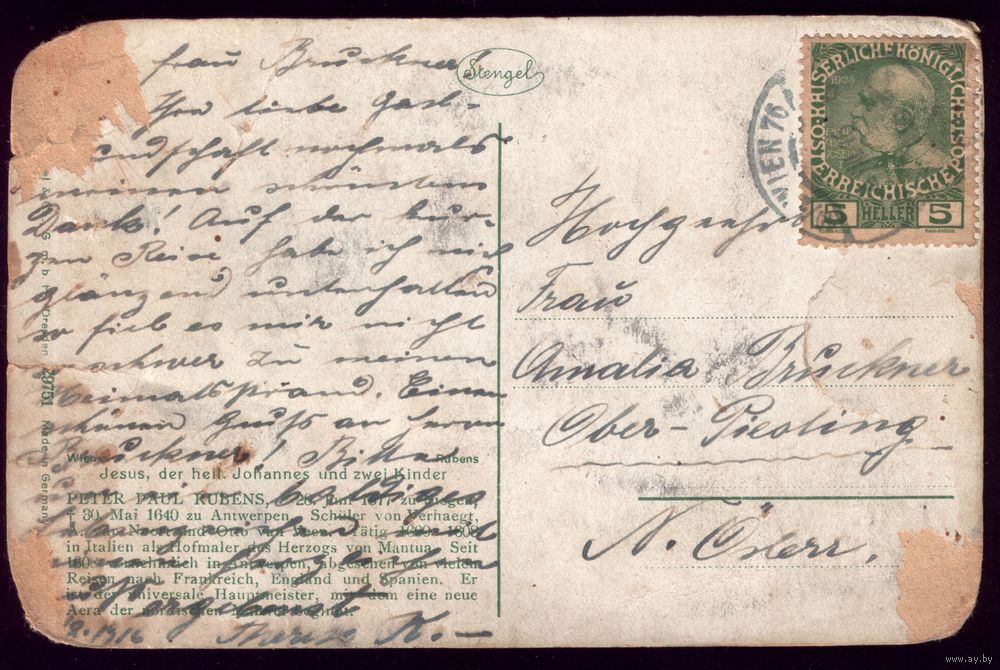 Frau Bruckner
Stengel
Ihre liebe Gast-
undschaft nochmals
meinen schönsten
Dank! Auf der kur-
zen Reise habe ich mich
glänzend unterhalten
so fiel es mir nicht
schwer zu meinen
Heimatstrand. Einen
schönen Gruß an Herrn
Bruckner! Bitte
2.1916 K.—
el & Co. G. m. b. H. Dresden 29751 Made in Germany
Wien Rubens
Jesus, der heil. Johannes und zwei Kinder
PETER PAUL RUBENS, 28. Juni 1577 zu Siegen,
† 30. Mai 1640 zu Antwerpen. Schüler von Verhaegt,
A. van Noort und Otto van Veen. Tätig 1600–1608
in Italien als Hofmaler des Herzogs von Mantua. Seit
1608 vornehmlich in Antwerpen, abgesehen von vielen
Reisen nach Frankreich, England und Spanien. Er
ist der universale Hauptmeister, mit dem eine neue
Aera der nordischen
WIEN 76
KAISERLICHE KÖNIGLICHE ÖSTERREICHISCHE POST
1908
5 HELLER 5
Hochgeehrte
Frau
Amalia Bruckner
Ober-Piesting
N. Österr.
www.ay.by